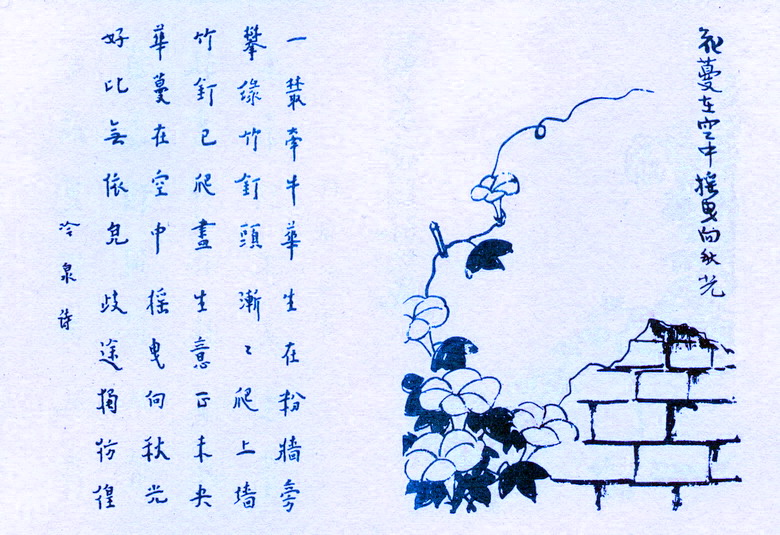 花蔓在空中搖曳向秋光
一叢牽牛華生在粉牆旁
攀緣竹釘頭漸〻爬上墻
竹釘已爬盡生意正未央
華蔓在空中搖曳向秋光
好比無依兒歧途獨彷徨
冷泉詩